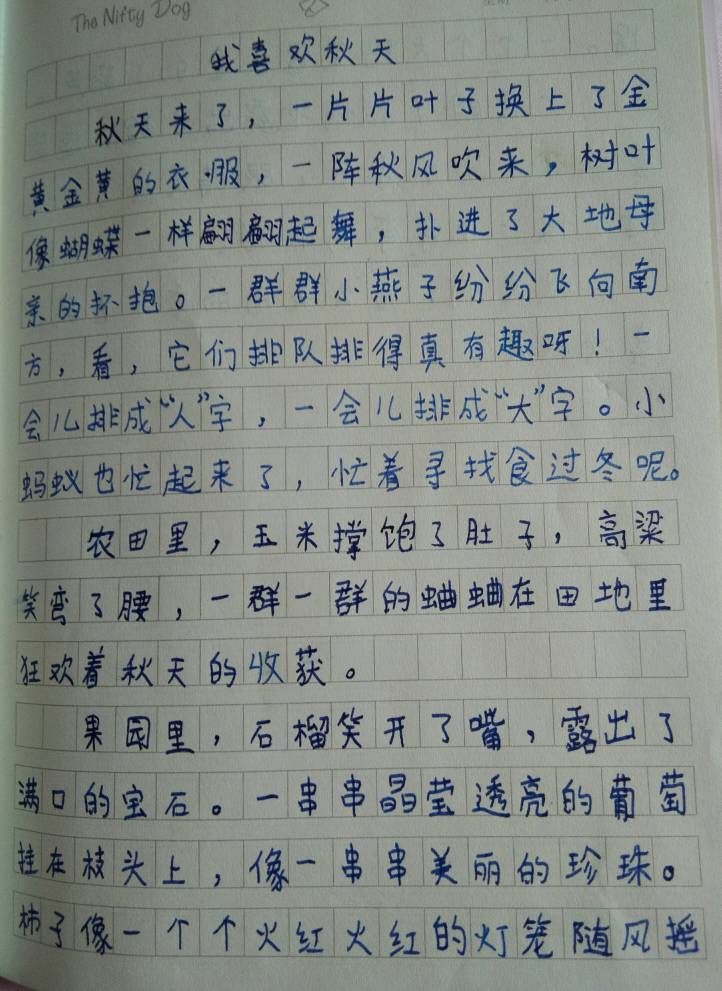 The Nifty Dog
我喜欢秋天
秋天来了，一片片叶子换上了金
黄金黄的衣服，一阵秋风吹来，树叶
像蝴蝶一样翩翩起舞，扑进了大地母
亲的怀抱。一群群小燕子纷纷飞向南
方，看，它们排队排得真有趣呀！一
会儿排成“人”字，一会儿排成“大”字。小
蚂蚁也忙起来了，忙着寻找食过冬呢。
农田里，玉米撑饱了肚子，高粱
笑弯了腰，一群一群的蛐蛐在田地里
狂欢着秋天的收获。
果园里，石榴笑开了嘴，露出了
满口的宝石。一串串晶莹透亮的葡萄
挂在枝头上，像一串串美丽的珍珠。
柿子像一个个火红火红的灯笼随风摇